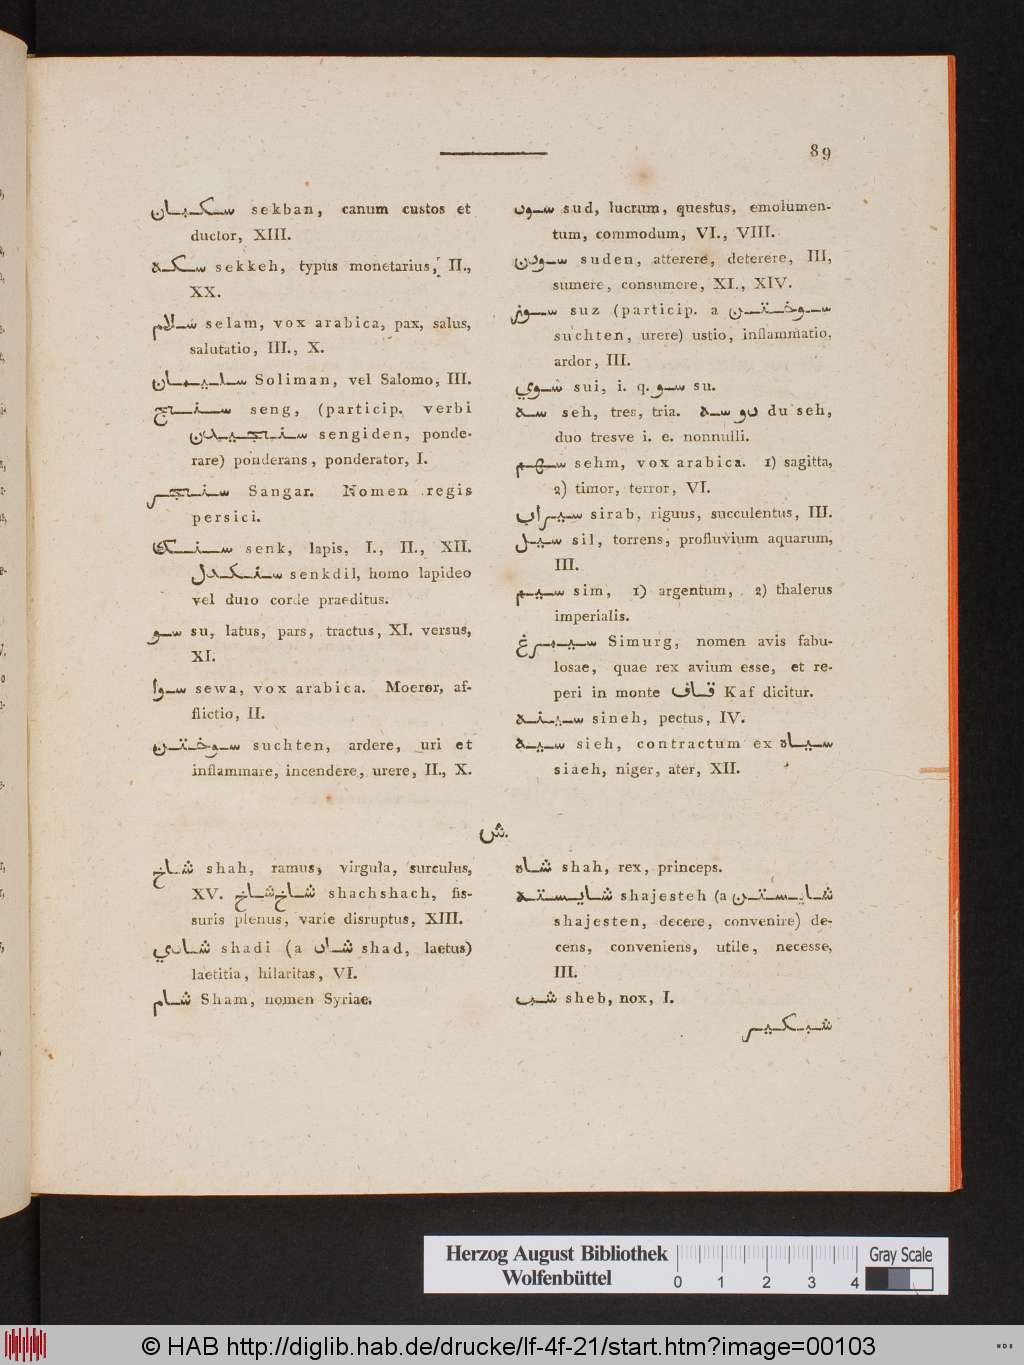 89
سكبان sekban, canum custos et
ductor, XIII.
سكه sekkeh, typus monetarius, II.,
XX.
سلام selam, vox arabica, pax, salus,
salutatio, III., X.
سليمان Soliman, vel Salomo, III.
سنج seng, (particip. verbi
سنجيدن sengiden, ponde-
rare) ponderans, ponderator, I.
سنجر Sangar. Nomen regis
persici.
سنك senk, lapis, I., II., XII.
سنكدل senkdil, homo lapideo
vel duro corde praeditus.
سو su, latus, pars, tractus, XI. versus,
XI.
سوا sewa, vox arabica. Moeror, af-
flictio, II.
سوختن suchten, ardere, uri et
inflammare, incendere, urere, II., X.
سود sud, lucrum, questus, emolumen-
tum, commodum, VI., VIII.
سودن suden, atterere, deterere, III,
sumere, consumere, XI., XIV.
سوز suz (particip. a سوختن
suchten, urere) ustio, inflammatio,
ardor, III.
سوي sui, i. q. سو su.
سه seh, tres, tria. دو سه du seh,
duo tresve i. e. nonnulli.
سهم sehm, vox arabica. 1) sagitta,
2) timor, terror, VI.
سيراب sirab, riguus, succulentus, III.
سيل sil, torrens, profluvium aquarum,
III.
سيم sim, 1) argentum, 2) thalerus
imperialis.
سيمرغ Simurg, nomen avis fabu-
losae, quae rex avium esse, et re-
peri in monte قاف Kaf dicitur.
سينه sineh, pectus, IV.
سيه sieh, contractum ex سياه
siaeh, niger, ater, XII.
ش.
شاخ shah, ramus, virgula, surculus,
XV. شاخ شاخ shachshach, fis-
suris plenus, varie disruptus, XIII.
شادي shadi (a شاد shad, laetus)
laetitia, hilaritas, VI.
شام Sham, nomen Syriae.
شاه shah, rex, princeps.
شايسته shajesteh (a شايستن
shajesten, decere, convenire) de-
cens, conveniens, utile, necesse,
III.
شب sheb, nox, I.
شبكير
Herzog August Bibliothek
Wolfenbüttel
0 1 2 3 4
Gray Scale
© HAB http://diglib.hab.de/drucke/lf-4f-21/start.htm?image=00103